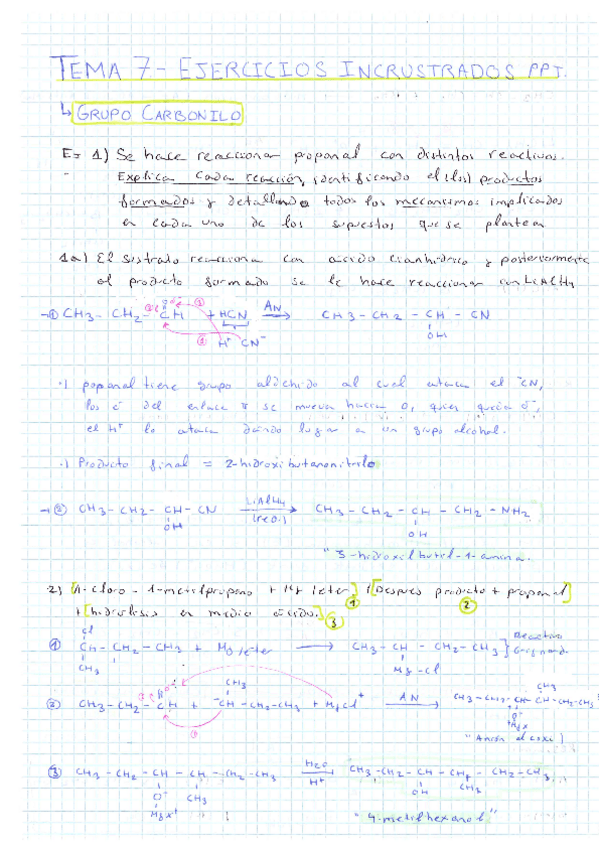 TEMA 7- EJERCICIOS INCRUSTRADOS PPT.
↳ GRUPO CARBONILO
Ej 1) Se hace reaccionar propanal con distintos reactivos.
Explica cada reacción, identificando el(los) productos
formados y detallando todos los mecanismos implicados
en cada uno de los supuestos que se plantean
1a) El sustrato reacciona con ácido cianhídrico y posteriormente
el producto formado se le hace reaccionar con LiAlH4
→① CH3- CH2- CH + HCN AN→ CH3- CH2 - CH - CN
O
OH
H+ CN-
·) popanal tiene grupo aldehído al cual ataca el -CN,
los e- del enlace π se mueven hacia O, que queda O-,
el H+ lo ataca dando lugar a un grupo alcohol.
·) Producto final = 2-hidroxibutanonitrilo
→② CH3- CH2- CH- CN LiAlH4 (red.) → CH3- CH2- CH - CH2 - NH2
OH OH
"3-hidroxilbutil-1-amina.
2) 1-cloro - 1-metilpropano + Mg (eter) / Después producto + propanal
+ hidrólisis en medio ácido. ① ② ③
Cl
① CH- CH2 - CH3 + Mg, eter → CH3- CH - CH2-CH3 } Reactivo Grignard.
CH3 Mg-Cl
O CH3 CH3
② CH3-CH2-CH + -CH-CH2-CH3 + MgCl+ AN→ CH3-CH2-CH-CH-CH2-CH3
O-
+MgX
③ CH3- CH2- CH - CH - CH2 - CH3 H2O H+ → CH3-CH2- CH - CH - CH2-CH3
O- CH3 OH CH3
MgX+ "4-metilhexanol"